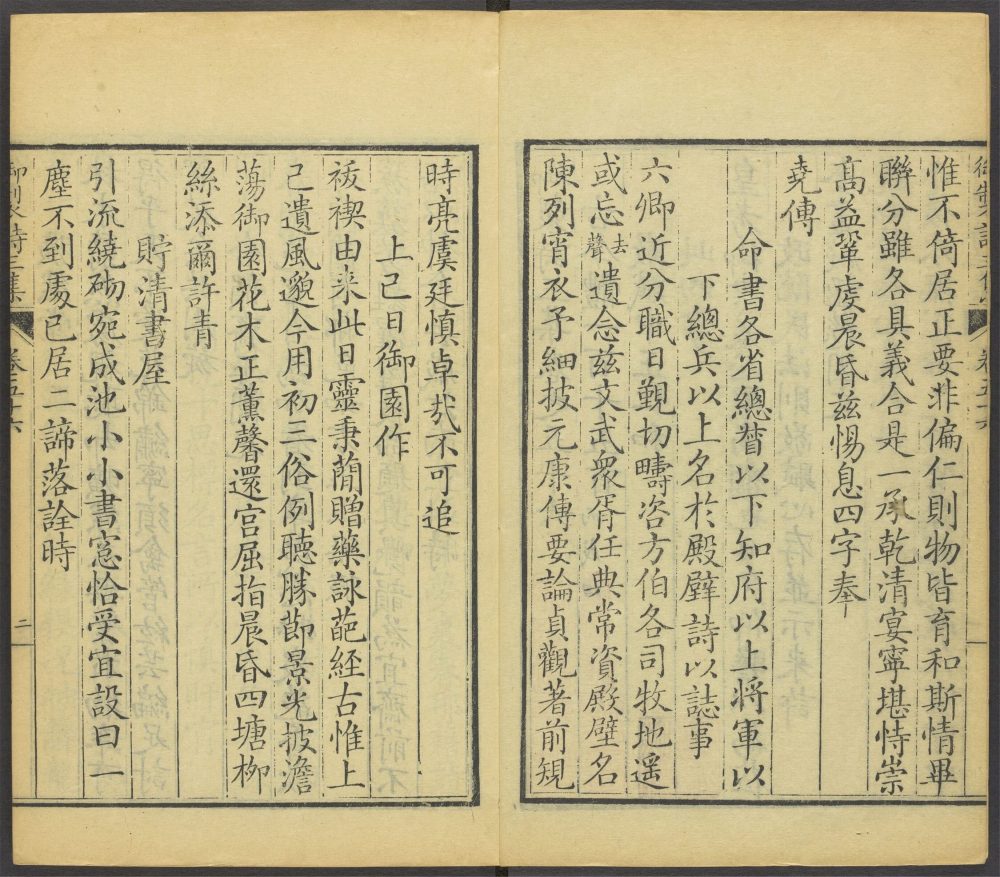 御製詩三集 卷五十六
惟不倚居正要非偏仁則物皆育和斯情畢
聨分雖各具義合是一承乾清宴寧堪恃崇
髙益鞏虔晨昏兹惕息四字奉
堯傳
命書各省總督以下知府以上將軍以
下總兵以上名於殿壁詩以誌事
六卿近分職日覲切疇咨方伯各司牧地遥
或忘去聲遺念兹文武衆胥任典常資殿壁名
陳列宵衣予細披元康傳要論貞觀著前䂓
時亮虞廷慎卓㢤不可追
上巳日御園作
祓禊由来此日靈秉蕳贈藥詠葩経古惟上
己遺風邈今用初三俗例聴勝莭景光披澹
蕩御園花木正薰馨還宫屈指晨昏四塘栁
絲添爾許青
貯清書屋
引流繞砌宛成池小小書窓恰受宜設曰一
塵不到䖏已居二諦落詮時
御製詩三集 卷五十六 二